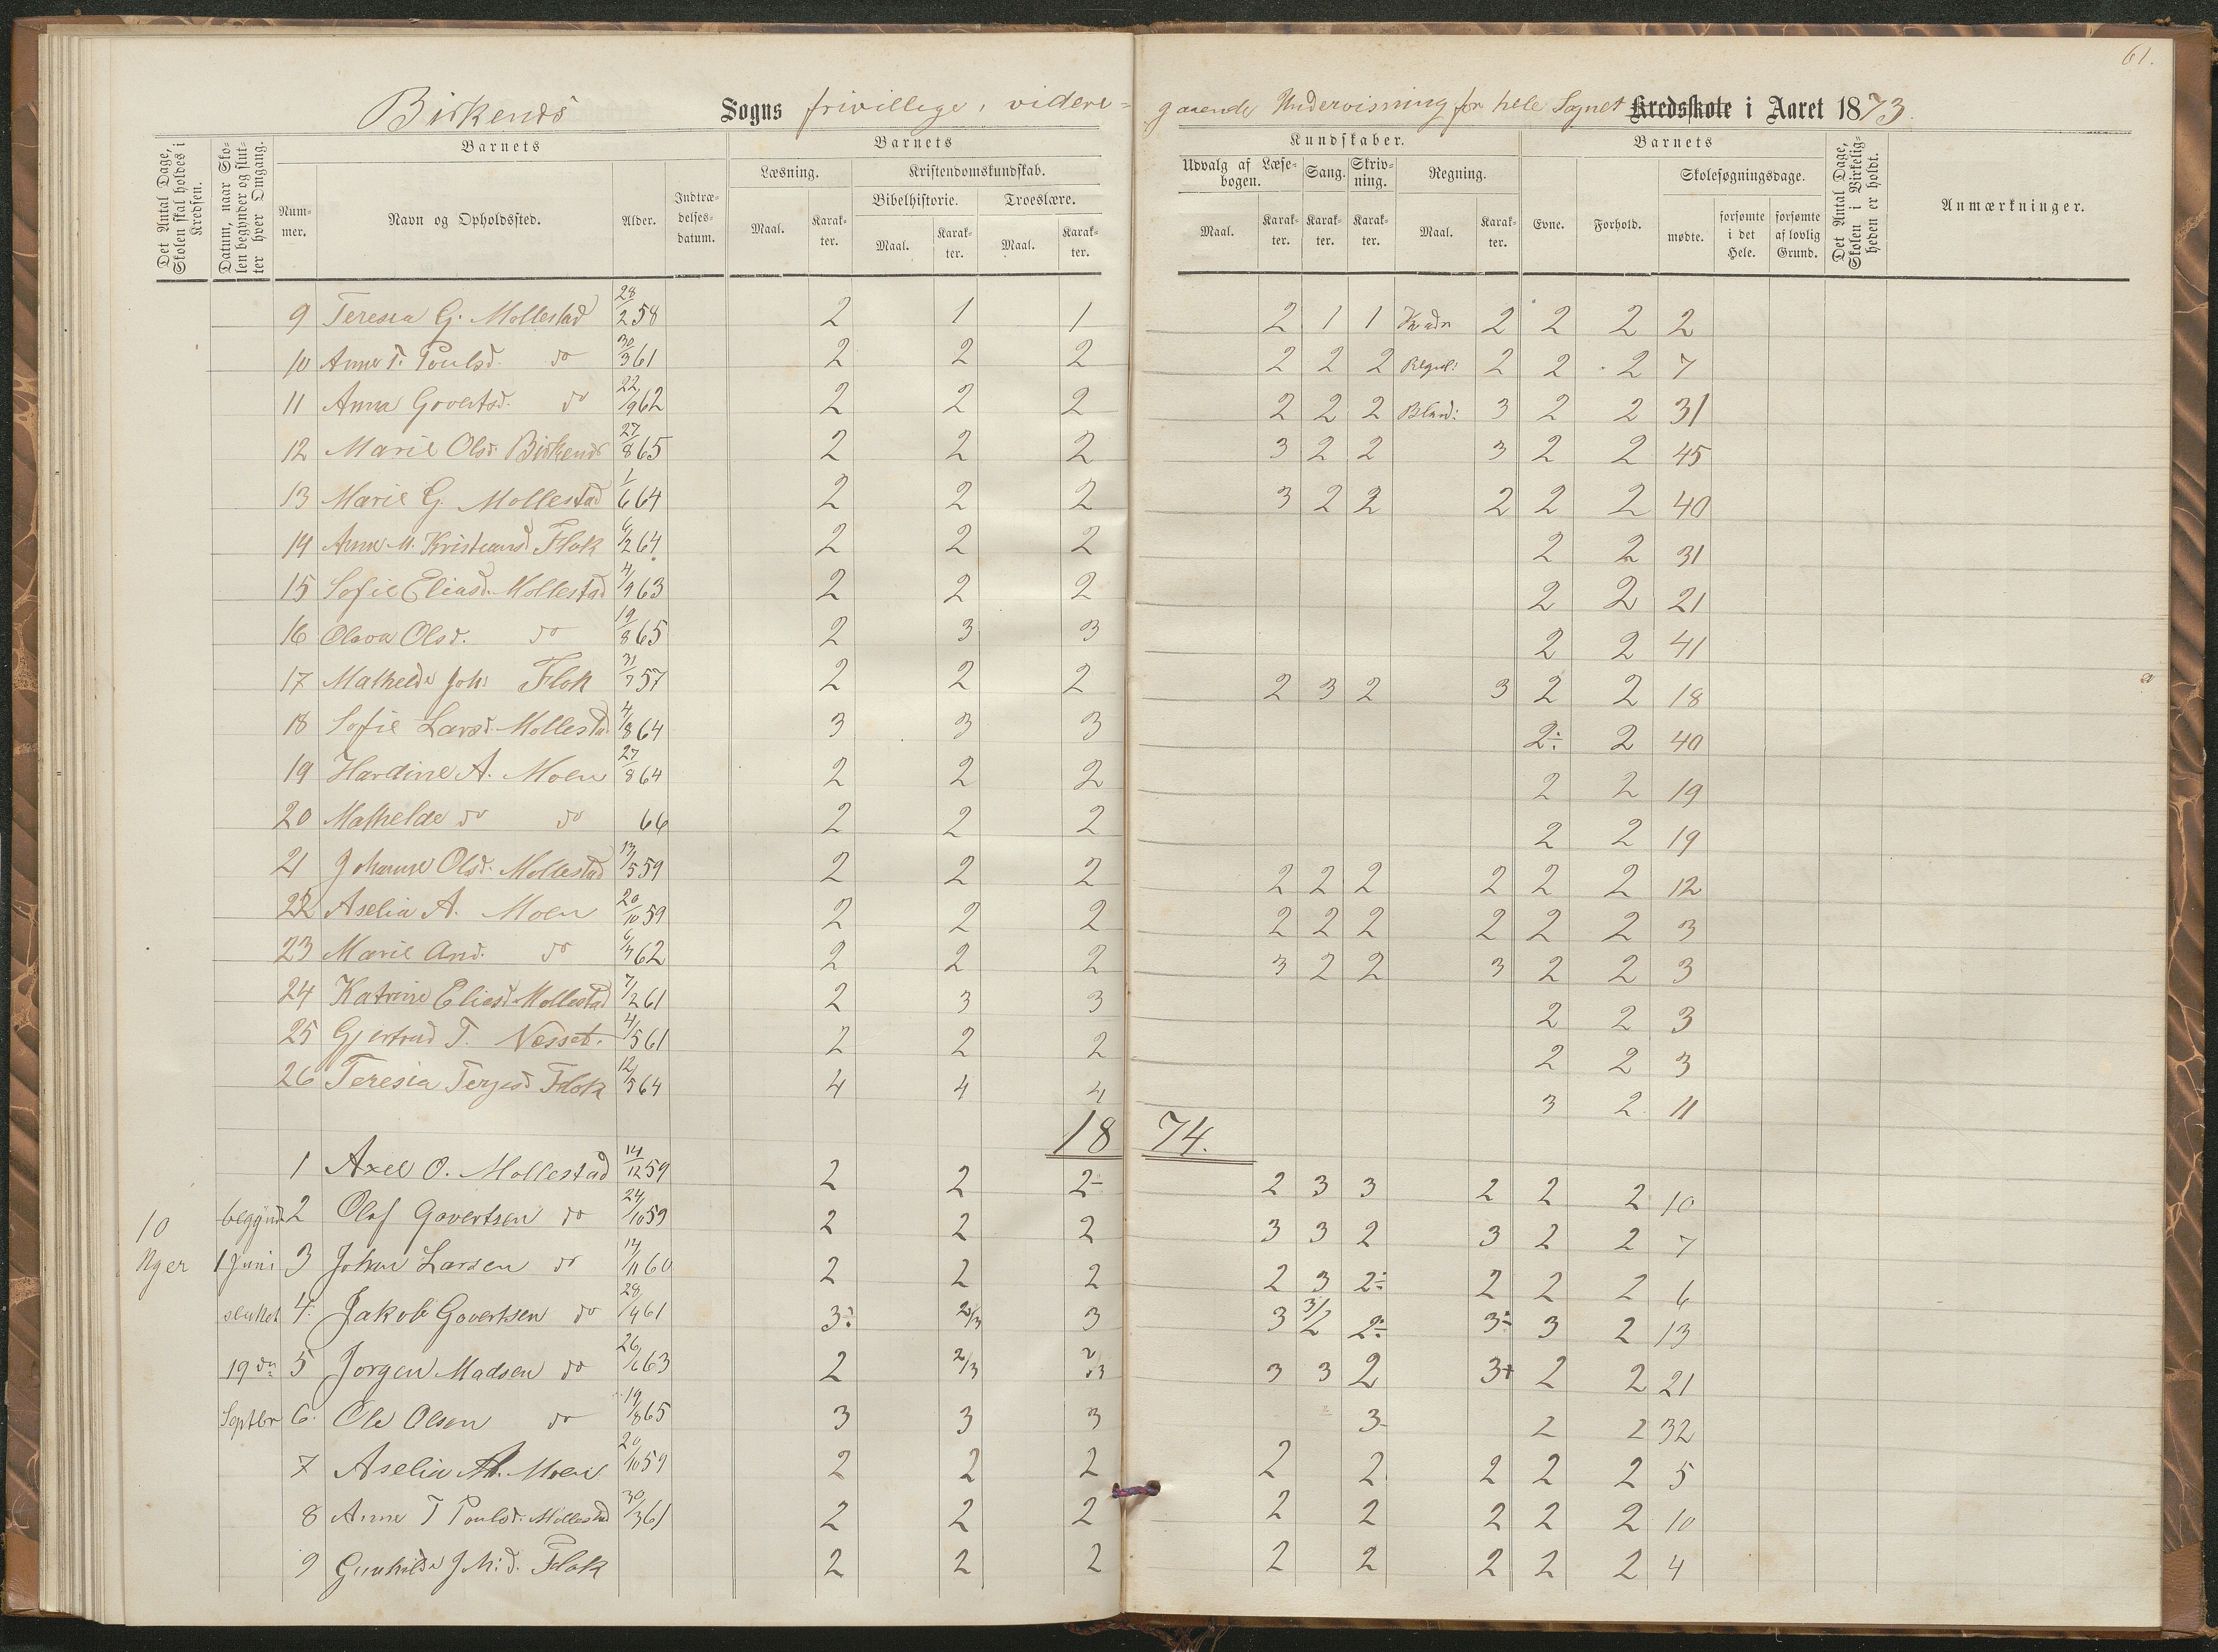 61.
Birkenes Sogns frivillige, videre= gaaende Undervisning for hele Sognet Kredsskole i Aaret 1873.
Det Antal Dage, Skolen skal holdes i Kredsen.
Datum, naar Skolen begynder og slutter hver Omgang.
Barnets
Nummer.
Navn og Opholdssted.
Alder.
Indtrædelsesdatum.
Barnets
Læsning.
Maal. Karakter.
Kristendomskundskab.
Bibelhistorie. Troeslære.
Maal. Karakter. Maal. Karakter.
Kundskaber.
Udvalg af Læsebogen. Sang. Skrivning. Regning.
Maal. Karakter. Karakter. Karakter. Maal. Karakter.
Barnets
Evne. Forhold.
Skolesøgningsdage.
mødte. forsømte i det Hele. forsømte af lovlig Grund.
Det Antal Dage, Skolen i Virkeligheden er holdt.
Anmærkninger.
9 Teresia G. Mollestad 28/2 58 2 1 1 2 1 1 2 2 2 2
10 Anne T. Poulsd. do 30/3 61 2 2 2 2 2 2 Regul: 2 2 2 7
11 Anna Govertsd. do 22/9 62 2 2 2 2 2 2 Bland: 3 2 2 31
12 Marie Olsd. Birkenes 27/8 65 2 2 2 3 2 2 3 2 2 45
13 Marie G. Mollestad 1/6 64 2 2 2 3 2 2 2 2 2 40
14 Anne M. Kristiansd Flok 6/2 64 2 2 2 2 2 31
15 Sofie Eliasd. Mollestad 4/9 63 2 2 2 2 2 21
16 Olava Olsd. do 19/8 65 2 3 3 2 2 41
17 Mathelde Joh: Flok 31/7 57 2 2 2 2 3 2 3 2 2 18
18 Sofie Larsd. Mollestad 4/8 64 3 3 3 2÷ 2 40
19 Hardine A. Moen 27/8 64 2 2 2 2 2 19
20 Mathelde do do 66 2 2 2 2 2 19
21 Johanne Olsd. Mollestad 13/5 59 2 2 2 2 2 2 2 2 2 12
22 Aselia A. Moen 20/10 59 2 2 2 2 2 2 2 2 2 3
23 Marie And. do 62 2 2 2 3 2 2 3 2 2 3
24 Katrine Eliasd. Mollestad 7/2 61 2 3 3 2 2 3
25 Gjertrud T. Nesset. 4/5 61 2 2 2 2 2 3
26 Teresia Terjesd Flok 12/5 64 4 4 4 3 2 11
18 74.
1 Axel O. Mollestad 14/12 59 2 2 2- 2 3 3 2 2 2 10
10 begyndt 2 Olaf Govertsen do 24/10 59 2 2 2 3 3 2 3 2 2 7
Uger 1 Juni 3 Johan Larsen do 14/11 60 2 2 2 2 3 2÷ 2 2 2 6
sluttet 4. Jakob Govertsen do 28/4 61 3÷ 2/3 3 3 3/2 2÷ 3÷ 3 2 13
19de 5 Jorgen Madsen do 26/6 63 2 2/3 2/3 3 3 2 3+ 2 2 21
Septbr 6. Ole Olsen do 19/8 65 3 3 3 3- 2 2 32
7 Aselia A. Moen 20/10 59 2 2 2 2 2 2 2 2 5
8 Anne T Poulsd. Mollestad 30/3 61 2 2 2 2 2 2 2 2 10
9 Gunhilde J. M:d. Flok 2 2 2 2 2 2 2 2 4